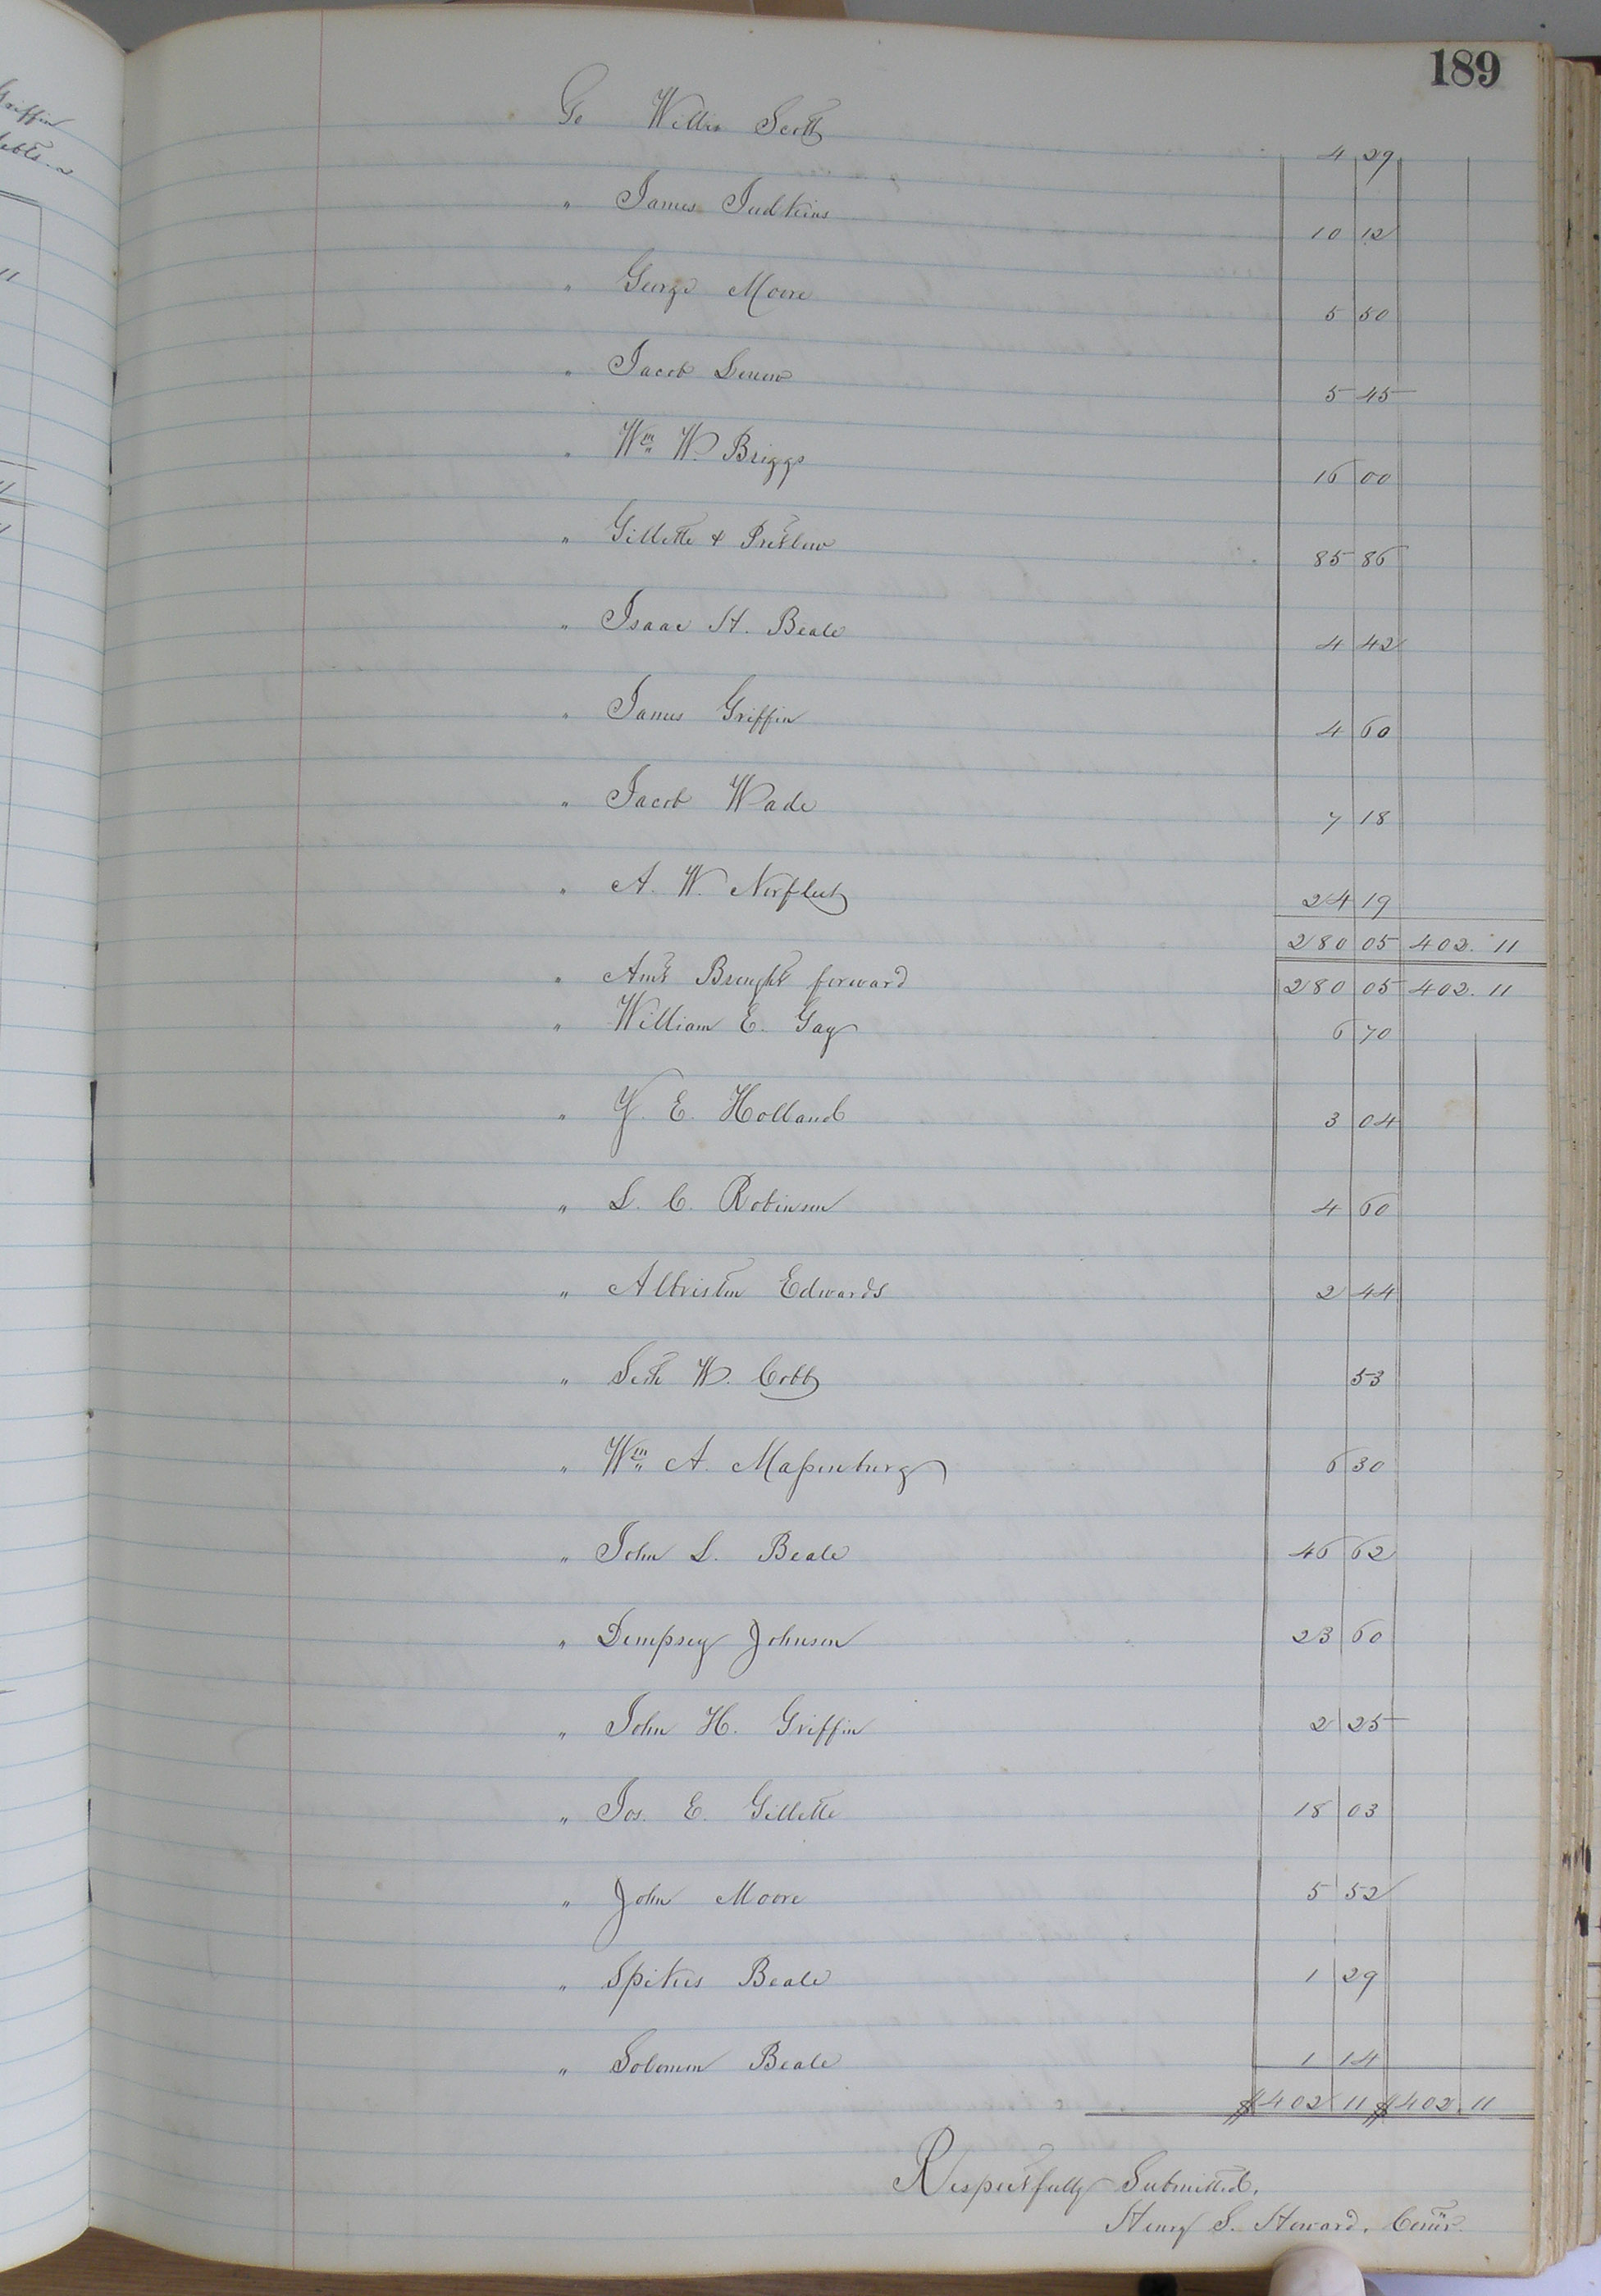 Griffin
debts.
11
189
To Willis Scott 4 29
" James Judkins 10 12
" George Moore 5 50
" Jacob Lenow 5 45
" Wm W. Briggs 16 00
" Gillette & Pretlow 85 86
" Isaac H. Beale 4 42
" James Griffin 4 60
" Jacob Wade 7 18
" A. W. Norfleet 24 19
280 05 402. 11
" Amt Brought forward 280 05 402. 11
" William E. Gay 6 70
" Y. E. Holland 3 04
" L. C. Robinson 4 60
" Albriston Edwards 2 44
" Seth W. Cobb 53
" Wm A. Massenburg 6 30
" John L. Beale 46 62
" Dempsey Johnson 23 60
" John H. Griffin 2 25
" Jos. E. Gillette 18 03
" John Moore 5 52
" Spikes Beale 1 29
" Solomon Beale 1 14
$402 11 $402. 11
Respectfully Submitted,
Henry S. Howard, Comr.